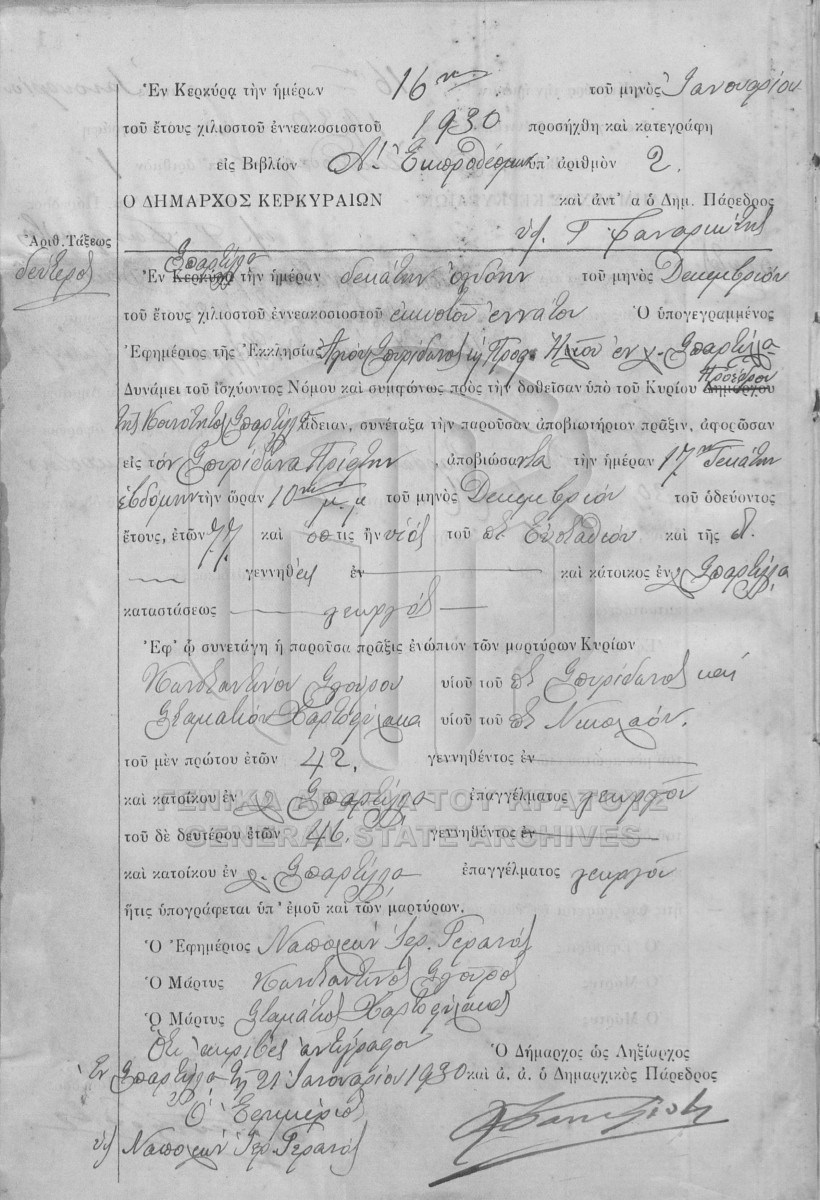 Ἐν Κερκύρᾳ τὴν ἡμέραν 16ην τοῦ μηνὸς Ἰανουαρίου
τοῦ ἔτους χιλιοστοῦ ἐννεακοσιοστοῦ 1930 προσήχθη καὶ κατεγράφη
εἰς Βιβλίον Α! Ἐκπροθέσμων ὑπ' ἀριθμὸν 2.
Ο ΔΗΜΑΡΧΟΣ ΚΕΡΚΥΡΑΙΩΝ καὶ ἀντ' α ὁ Δημ. Πάρεδρος
Ἀριθ. Τάξεως
δεύτερος
Σπαρτίλα
Ἐν Κερκύρᾳ τὴν ἡμέραν δεκάτην ὀγδόην τοῦ μηνὸς Δεκεμβρίου
τοῦ ἔτους χιλιοστοῦ ἐννεακοσιοστοῦ εἰκοστοῦ ἐννάτου Ὁ ὑπογεγραμμένος
Ἐφημέριος τῆς Ἐκκλησίας Ἁγίου Σπυρίδωνος ἐν χ. Σπαρτίλλα
Προέδρου
Δυνάμει τοῦ ἰσχύοντος Νόμου καὶ συμφώνως πρὸς τὴν δοθεῖσαν ὑπὸ τοῦ Κυρίου Δημάρχου
τῆς Κοινότητος Σπαρτίλλα ἄδειαν, συνέταξα τὴν παροῦσαν ἀποβιωτήριον πρᾶξιν, ἀφορῶσαν
εἰς τὸν Σπυρίδωνα ἀποβιώσαντα τὴν ἡμέραν 17ην δεκάτην
ἑβδόμην τὴν ὥραν 10ην μ.μ τοῦ μηνὸς Δεκεμβρίου τοῦ ὁδεύοντος
ἔτους, ἐτῶν 77 καὶ ὅστις ἦν υἱὸς τοῦ ποτὲ Εὐσταθίου καὶ τῆς
γεννηθεὶς ἐν καὶ κάτοικος ἐν χ. Σπαρτίλλα
καταστάσεως γεωργός
Ἐφ' ᾧ συνετάγη ἡ παροῦσα πρᾶξις ἐνώπιον τῶν μαρτύρων Κυρίων
Κωνσταντίνου Σγούρου υἱοῦ τοῦ ποτὲ Σπυρίδωνος καὶ
Σταματίου Χαρτοφύλακα υἱοῦ τοῦ ποτὲ Νικολάου.
τοῦ μὲν πρώτου ἐτῶν 42. γεννηθέντος ἐν
καὶ κατοίκου ἐν χ. Σπαρτίλλα ἐπαγγέλματος γεωργοῦ
ΓΕΝΙΚΑ ΑΡΧΕΙΑ ΤΟΥ ΚΡΑΤΟΥΣ
τοῦ δὲ δευτέρου ἐτῶν 46. γεννηθέντος ἐν
GENERAL STATE ARCHIVES
καὶ κατοίκου ἐν χ. Σπαρτίλλα ἐπαγγέλματος γεωργοῦ
ἥτις ὑπογράφεται ὑπ' ἐμοῦ καὶ τῶν μαρτύρων.
Ὁ Ἐφημέριος Ναπολέων Ἱερ. Γερανός
Ὁ Μάρτυς Κωνσταντῖνος Σγοῦρος
Ὁ Μάρτυς Σταμάτιος Χαρτοφύλακας
Ὅτι ἀκριβὲς ἀντίγραφον Ὁ Δήμαρχος ὡς Ληξίαρχος
Ἐν Σπαρτίλλα τῇ 21 Ἰανουαρίου 1930 καὶ ἀ. ἀ. ὁ Δημαρχικὸς Πάρεδρος
Ὁ Ἐφημέριος
Ναπολέων Ἱερ. Γερανός